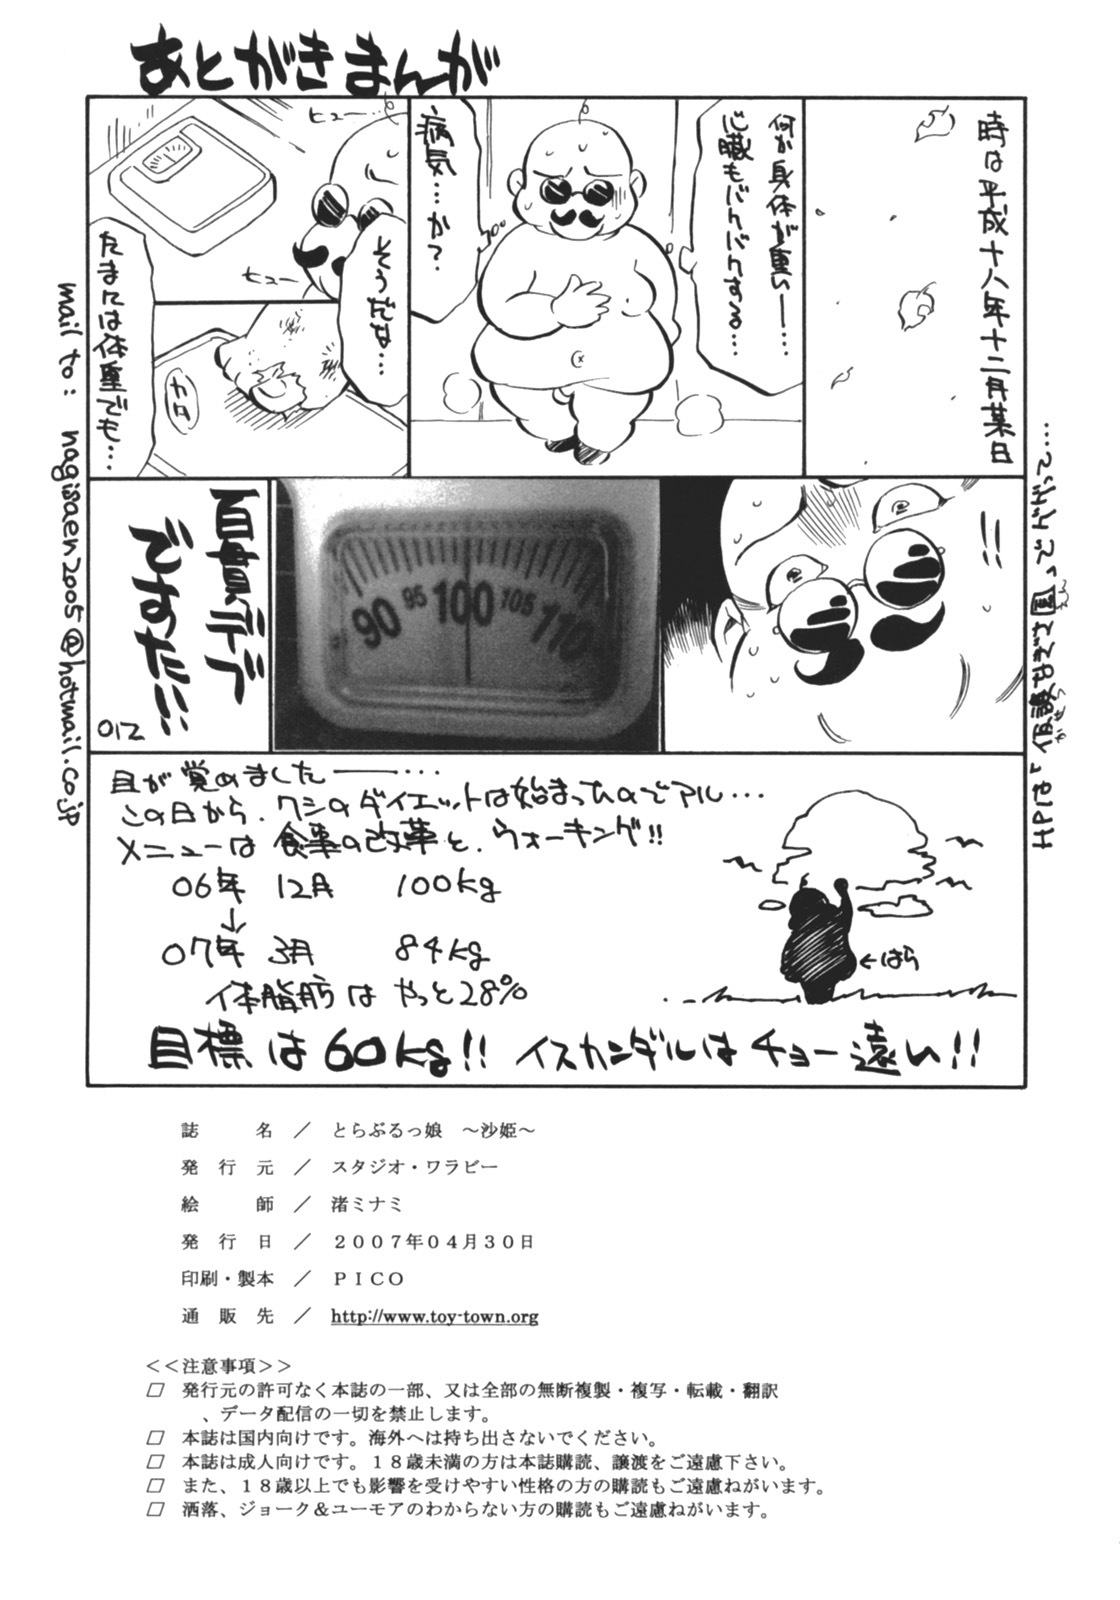 あとがきまんが
時は平成十八年十二月某日
何か身体が重い―…
心臓もバクバクする…
病気…か?
ヒュー…
ヒュー
そうだな…
たまには体重でも…
カタ
!!
90 95 100 105 110
百貫デブ
ですた!!
012
目が覚めました――…
この日から、ワシのダイエットは始まったのでアル…
メニューは食事の改革と、ウォーキング!!
06年 12月 100kg
↓
07年 3月 84kg
体脂肪はやっと28%
←はら
目標は60kg!! イスカンダルはチョー遠い!!
mail to: nagisaen2005@hotmail.co.jp
誌　名 ／ とらぶるっ娘　～沙姫～
発 行 元 ／ スタジオ・ワラビー
絵　師 ／ 渚ミナミ
発 行 日 ／ ２００７年０４月３０日
印刷・製本 ／ ＰＩＣＯ
通 販 先 ／ http://www.toy-town.org
＜＜注意事項＞＞
□ 発行元の許可なく本誌の一部、又は全部の無断複製・複写・転載・翻訳
、データ配信の一切を禁止します。
□ 本誌は国内向けです。海外へは持ち出さないでください。
□ 本誌は成人向けです。１８歳未満の方は本誌購読、譲渡をご遠慮下さい。
□ また、１８歳以上でも影響を受けやすい性格の方の購読もご遠慮ねがいます。
□ 洒落、ジョーク＆ユーモアのわからない方の購読もご遠慮ねがいます。